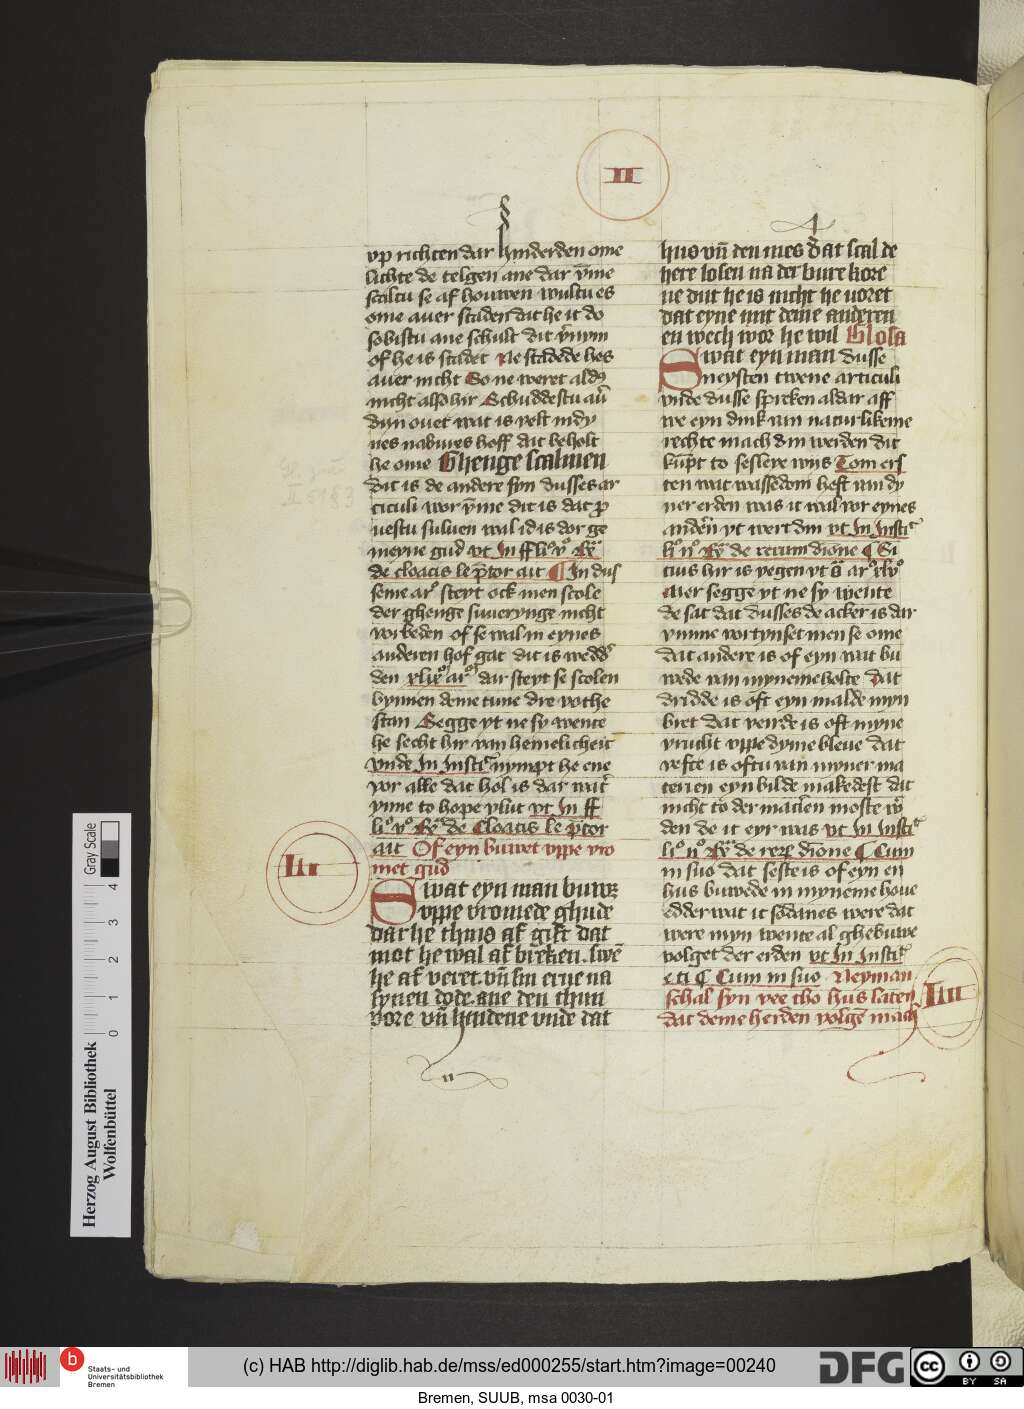 II
vp richten dar hinderden ome
lichte de telgen ane dar vm̄e
scaltu se af houwen wultu es
ome auer staden dat he it do
so bistu ane schult dit v̉nym
of he is stadet Ne stadede hes
auer nicht So ne weret aldꝰ
nicht also hir Schuddestu au̇
dyn ouet wat is velt in dy
nes nabures hoff dat beholt
he ome Ghenge scalmen
dit is de andere syn dusses ar
ticuli wor vm̄e dit is dat p
uestu suluen wal id is dor ge
meyne gud vt In ff li
de cloacis le p̄tor ait ¶ In dus
seme arͦ steyt ock men scole
der ghenge suuerynge nicht
vorbeden of se wal in eynes
anderen hof gat dit is wedd
den xlixͦ arͦ dar steyt se scolen
bynnen deme tune dre vothe
stan Segge yt ne sy wente
he secht hir van hemelicheit
vnde In Instiͭ nympt he ene
vor alle dat hol is dar wat
ynne to hope vlut vt In ff
de Cloacis le p̄tor
ait Of eyn buwet vppe vro
met gud
III
Swat eyn man buwꝫ
vppe vromede ghude
dar he thins af gift dat
mot he wal af br̄eken. swē
he af veret. vn̄ sin erue na
synen dode. ane den thun
vore vn̄ hindene vnde dat
hus vn̄ den mes dat scal de
here losen na der bure kore
ne dut he is nicht he uoret
dat eyne mit deme anderen
en wech wor he wil Glosa
Swat eyn man dusse
neysten twene articuli
vnde dusse spreken aldar aff
we eyn dink van naturlikeme
rechte mach din werden dit
kūpt to sesleye wijs Tom ers
ten wat wassedom heft van dy
ner erden was it wal vor eynes
andern yt wert din vt In Instiͭ
de rerum dīone ¶ Si
cius hir is yegen
Auer segge yt ne sy wente
de sat dat dusses de acker is dar
vmme vortynset men se ome
dat andere is of eyn wat bu
wede van myneme holte Dat
dridde is oft eyn malde myn
bret dat veirde is oft myne
vrucht vppe dyme bleue dat
vefte is oftu van myner ma
terien eyn bilde makedest dat
nicht to der matien moste w
den de it eyr was vt In Instiͭ
de rerꝝ dīone ¶ Cum
in suo dat seste is of eyn en
hus buwede in myneme houe
edder wat it sodanes were dat
were myn wente al ghebuwe
volget der erden vt In Instiͭ
e ti ¶ Cum in suo Neyman
schal syn vee tho hus laten
dat deme herden volgē mach
IIII
Gray Scale
0 1 2 3 4
Herzog August Bibliothek
Wolfenbüttel
b
Staats- und
Universitätsbibliothek
Bremen
(c) HAB http://diglib.hab.de/mss/ed000255/start.htm?image=00240
DFG
cc
BY SA
Bremen, SUUB, msa 0030-01